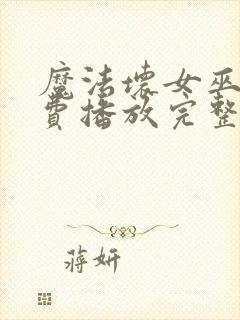 魔法壞女巫
費播放完整
蔣妍